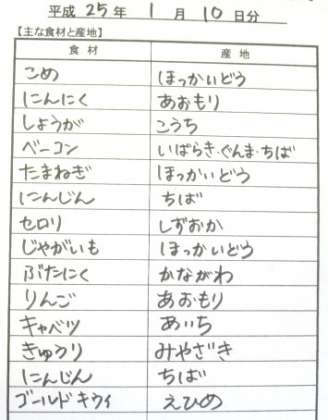 平成 25 年 1 月 10 日分
【主な食材と産地】
食材 産地
こめ ほっかいどう
にんにく あおもり
しょうが こうち
ベーコン いばらき・ぐんま・ちば
たまねぎ ほっかいどう
にんじん ちば
セロリ しずおか
じゃがいも ほっかいどう
ぶたにく かながわ
りんご あおもり
キャベツ あいち
きゅうり みやざき
にんじん ちば
ゴールドキウィ えひめ